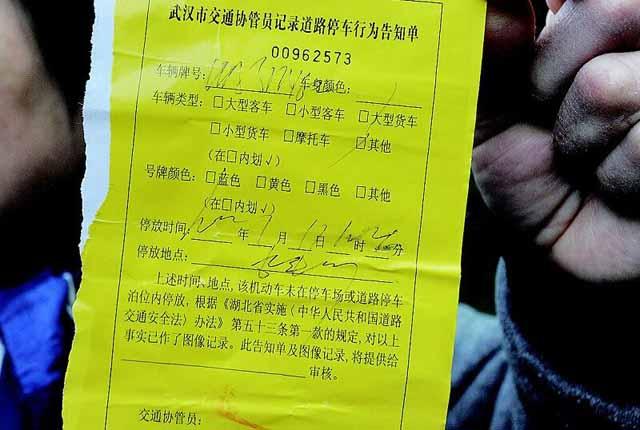 武汉市交通协管员记录道路停车行为告知单
00962573
车辆牌号: 车身颜色:
车辆类型: □大型客车 □小型客车 □大型货车
□小型货车 □摩托车 ☑其他
(在□内划√)
号牌颜色: □蓝色 □黄色 □黑色 □其他
(在□内划√)
停放时间: 年 月 日 时 分
停放地点:
上述时间、地点, 该机动车未在停车场或道路停车
泊位内停放, 根据《湖北省实施〈中华人民共和国道路
交通安全法〉办法》第五十三条第一款的规定, 对以上
事实已作了图像记录。此告知单及图像记录, 将提供给
审核。
交通协管员: